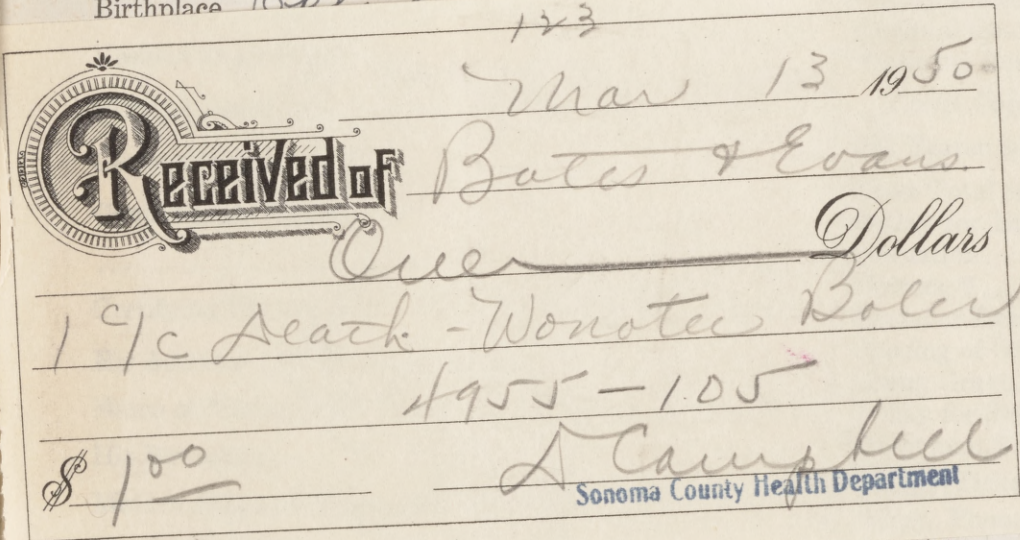 Birthplace
123
Mar 13 1950
Received of Bates & Evans
One Dollars
1 c/c Death - Wonotee Boles
4955-105
$ 1.00 D Campbell
Sonoma County Health Department